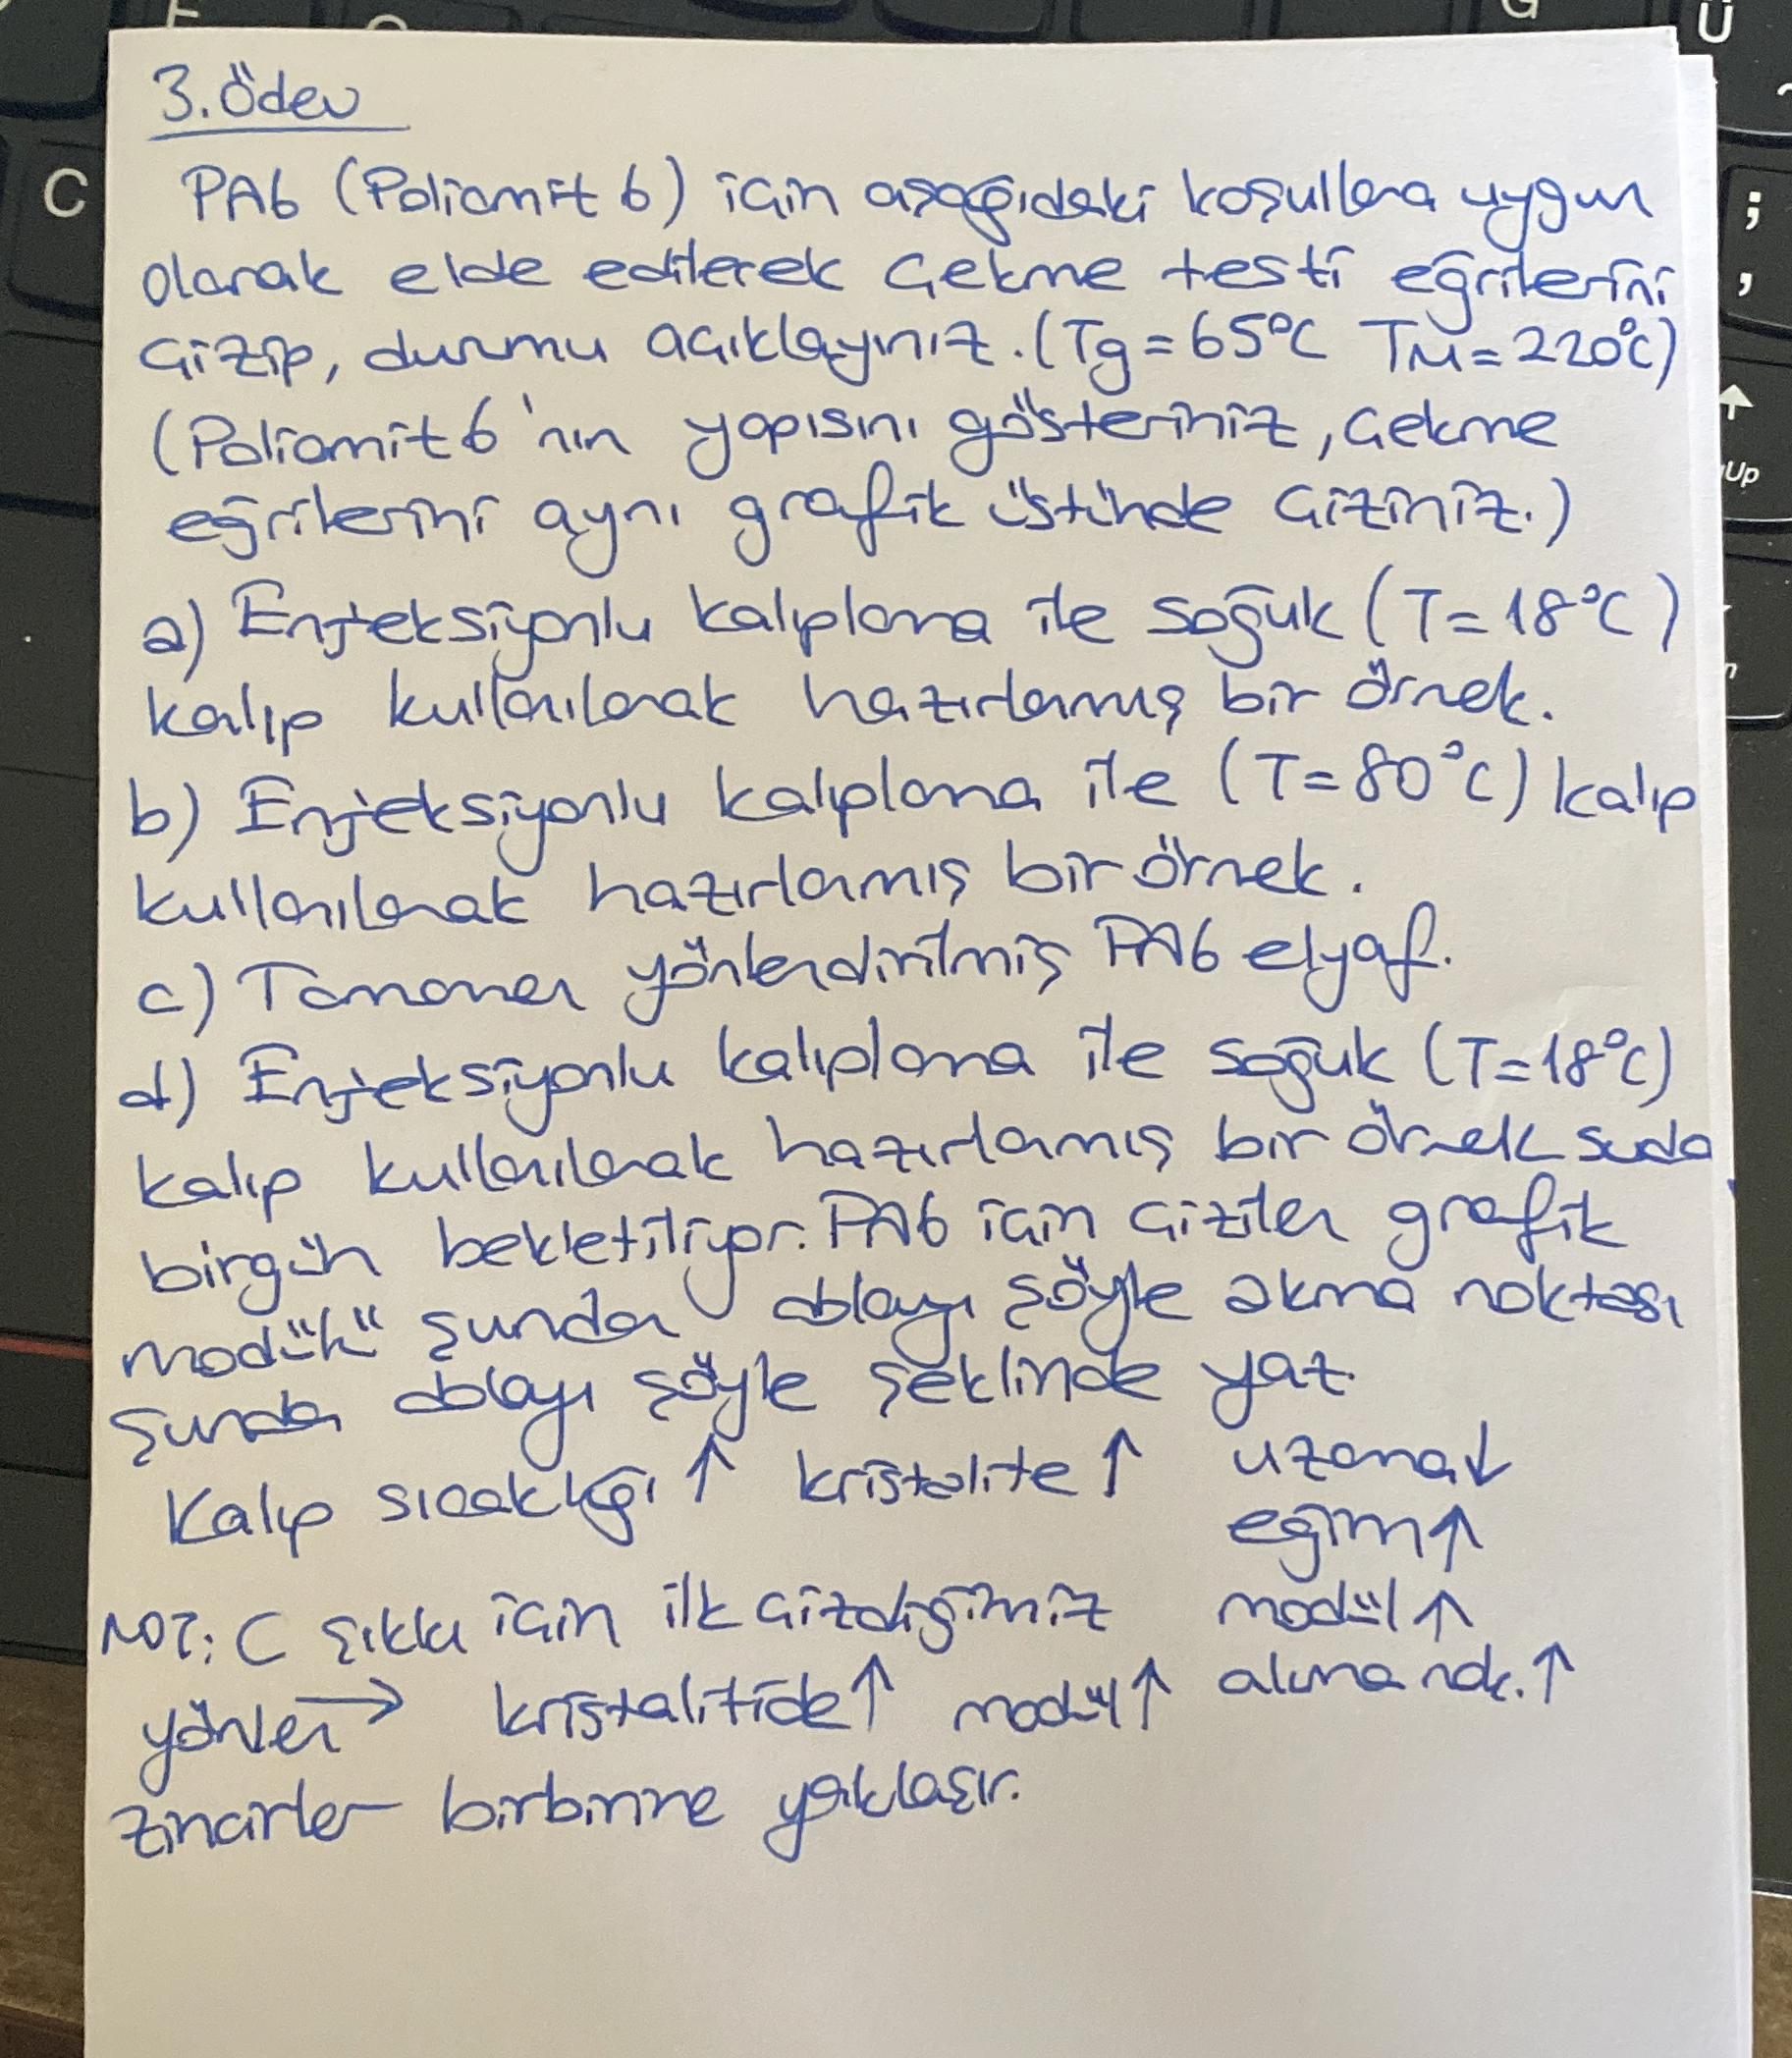 3. Ödev
PA6 (Poliamit 6) için aşağıdaki koşullara uygun
olarak elde edilerek çekme testi eğrilerini
çizip, durumu açıklayınız. (Tg = 65°C TM = 220°C)
(Poliamit 6'nın yapısını gösteriniz, çekme
eğrilerini aynı grafik üstünde çiziniz.)
a) Enjeksiyonlu kalıplama ile soğuk (T = 18°C)
kalıp kullanılarak hazırlanmış bir örnek.
b) Enjeksiyonlu kalıplama ile (T = 80°C) kalıp
kullanılarak hazırlanmış bir örnek.
c) Tamamen yönlendirilmiş PA6 elyaf.
d) Enjeksiyonlu kalıplama ile soğuk (T = 18°C)
kalıp kullanılarak hazırlanmış bir örnek suda
birgün bekletiliyor. PA6 için çizilen grafik
modülü şundan dolayı şöyle akma noktası
şundan dolayı şöyle şeklinde yaz.
Kalıp sıcaklığı ↑ kristalite ↑ uzama ↓
eğim ↑
modül ↑
akma nok. ↑
NOT: C şıkkı için ilk çizdiğimiz
yönlen → kristalitide ↑ modül ↑
zincirler birbirine yaklaşır.
C
;
,
Up
Ü
G